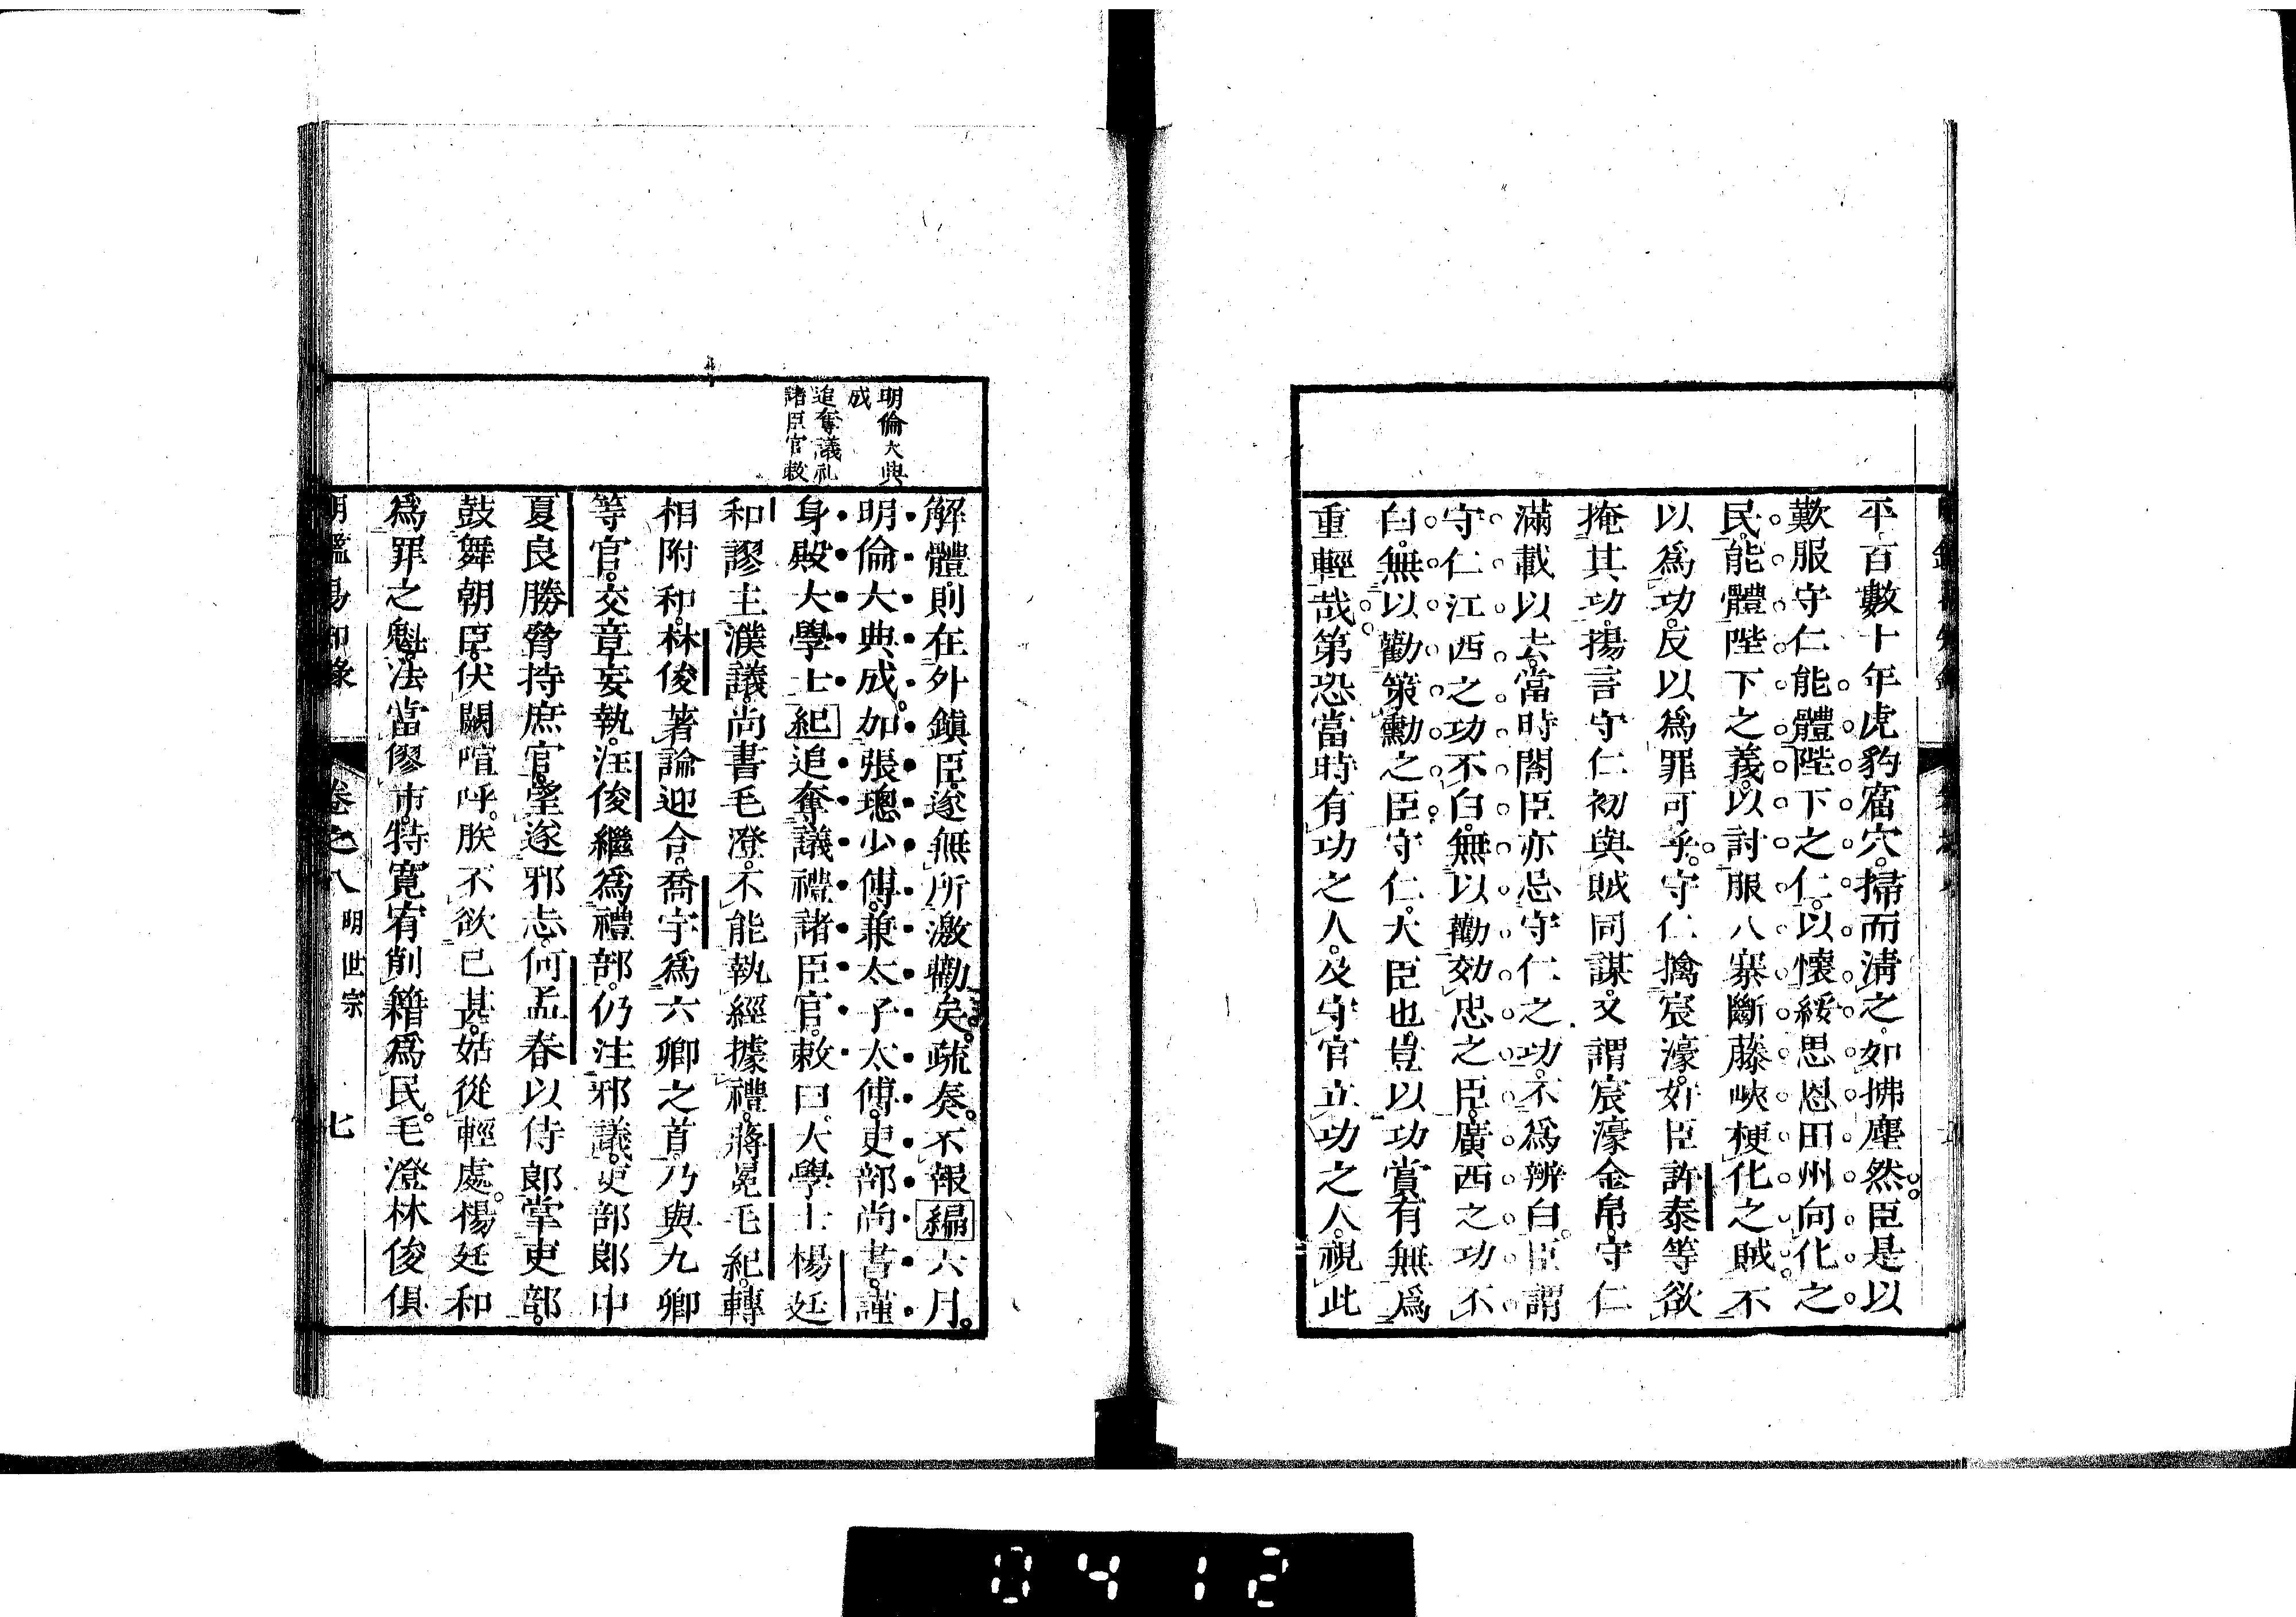 平百數十年虎豹窟穴。掃而淸之。如拂塵然。臣是以
歎服守仁能體陛下之仁。以懷綏思恩田州向化之
民。能體陛下之義。以討服八寨斷藤峽梗化之賊。不
以爲功。反以爲罪可乎。守仁擒宸濠。奸臣許泰等欲
掩其功。揚言守仁初與賊同謀。又謂宸濠金帛。守仁
滿載以去。當時閣臣亦忌守仁之功。不爲辨白。臣謂
守仁江西之功不白。無以勸効忠之臣。廣西之功不
白。無以勸策勳之臣。守仁。大臣也。豈以功賞有無爲
重輕哉。第恐當時有功之人。及守官立功之人。視此
明倫大典
成
追奪議礼
諸臣官敕
解體。則在外鎭臣。遂無所激勸矣。疏奏。不報編六月。
明倫大典成。加張璁少傅。兼太子太傅。吏部尚書。謹
身殿大學士紀追奪議禮諸臣官。敕曰。大學士楊廷
和謬主濮議。尚書毛澄。不能執經據禮。蔣冕毛紀。轉
相附和。林俊著論迎合。喬宇爲六卿之首。乃與九卿
等官。交章妄執。汪俊繼爲禮部。仍注邪議。吏部郞中
夏良勝脅持庶官。望遂邪志。何孟春以侍郞掌吏部。
鼓舞朝臣。伏闕喧呼。朕不欲已甚。姑從輕處。楊廷和
爲罪之魁。法當僇市。特寬宥削籍爲民。毛澄林俊俱
明鑑易知錄
卷之八
明世宗
七
0412